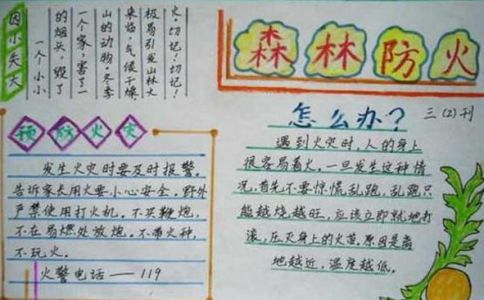 因小失大
一个小小
的烟头,毁了
一个家,害了一
山的动物·冬季
来临,气候干燥,
极易引发山林火
火·切记!切记!
森林防火
三(2)刊
预防火灾
发生火灾时要及时报警。
告诉家长用火要小心安全。野外
严禁使用打火机。不买鞭炮,
不在易燃处放炮。不带火种,
不玩火。
火警电话——119
怎么办?
遇到火灾时,人的身上
很容易着火,一旦发生这种情
况,首先不要惊慌乱跑,乱跑只
能越烧越旺,应该立即就地打
滚,压灭身上的火苗。原因是离
地越近,温度越低。